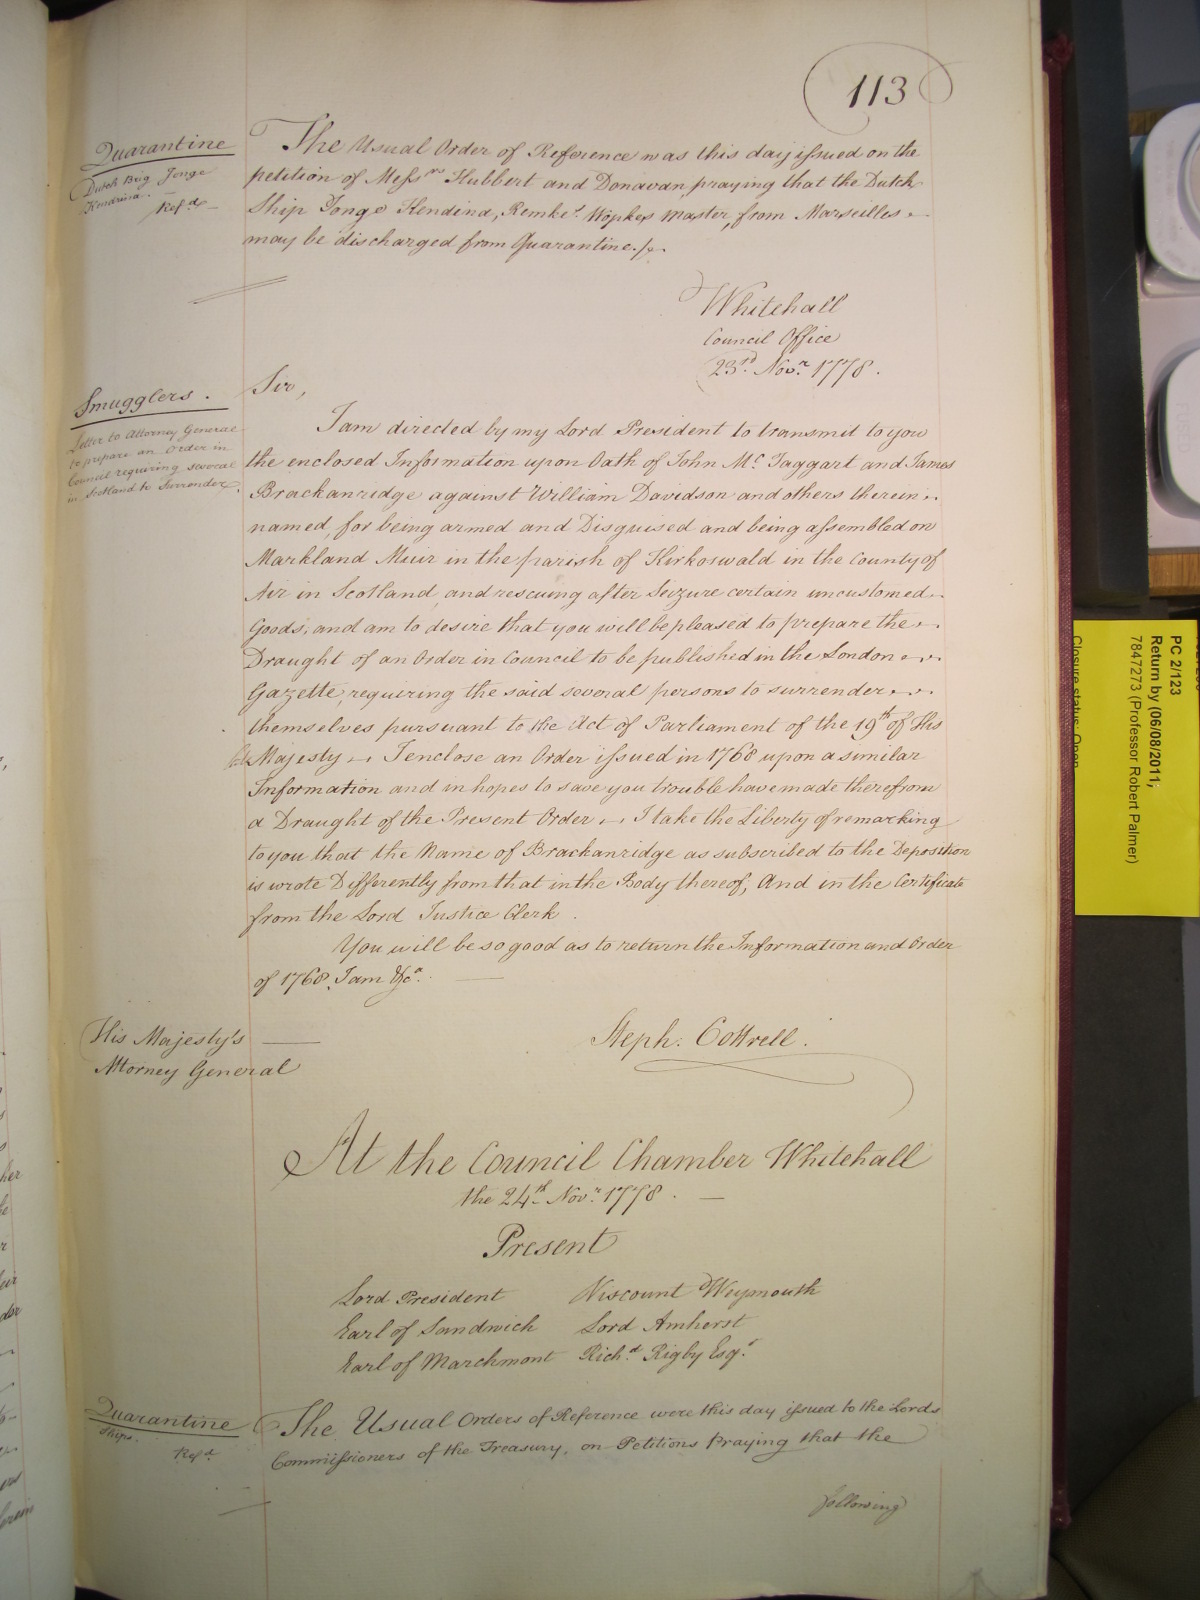 113
Quarantine
Dutch Brig Jonge
Kendrina.
Refd.
The Usual Order of Reference was this day issued on the
petition of Messrs Hubbert and Donavan, praying that the Dutch
Ship Jonge Hendina, Remke Wopkes Master, from Marseilles
may be discharged from Quarantine./.
Whitehall
Council Office
23rd. Novr. 1778.
Sir,
Smugglers.
Letter to Attorney General
to prepare an Order in
Council requiring several
in Scotland to Surrender.
I am directed by my Lord President to transmit to you
the enclosed Information upon Oath of John Mc Taggart and James
Brackanridge against William Davidson and others therein
named, for being armed and Disguised and being assembled on
Markland Muir in the parish of Kirkoswald in the County of
Air in Scotland, and rescuing after Seizure certain uncustomed
Goods; and am to desire that you will be pleased to prepare the
Draught of an Order in Council to be published in the London
Gazette, requiring the said several persons to surrender
themselves pursuant to the Act of Parliament of the 19th of His
Majesty I enclose an Order issued in 1768 upon a similar
Information and in hopes to save you trouble have made therefrom
a Draught of the Present Order I take the Liberty of remarking
to you that the Name of Brackanridge as subscribed to the Deposition
is wrote Differently from that in the Body thereof, And in the Certificate
from the Lord Justice Clerk.
You will be so good as to return the Information and Order
of 1768. I am &ca.
Steph. Cottrell.
His Majesty's
Attorney General
At the Council Chamber Whitehall
the 24th Novr. 1778.
Present
Lord President Viscount Weymouth
Earl of Sandwich Lord Amherst
Earl of Marchmont Richd. Rigby Esqr.
Quarantine
Ships.
Refd.
The Usual Orders of Reference were this day issued to the Lords
Commissioners of the Treasury, on Petitions Praying that the
following
PC 2/123
Return by (06/08/2011;
7847273 (Professor Robert Palmer)
Closure status: Open